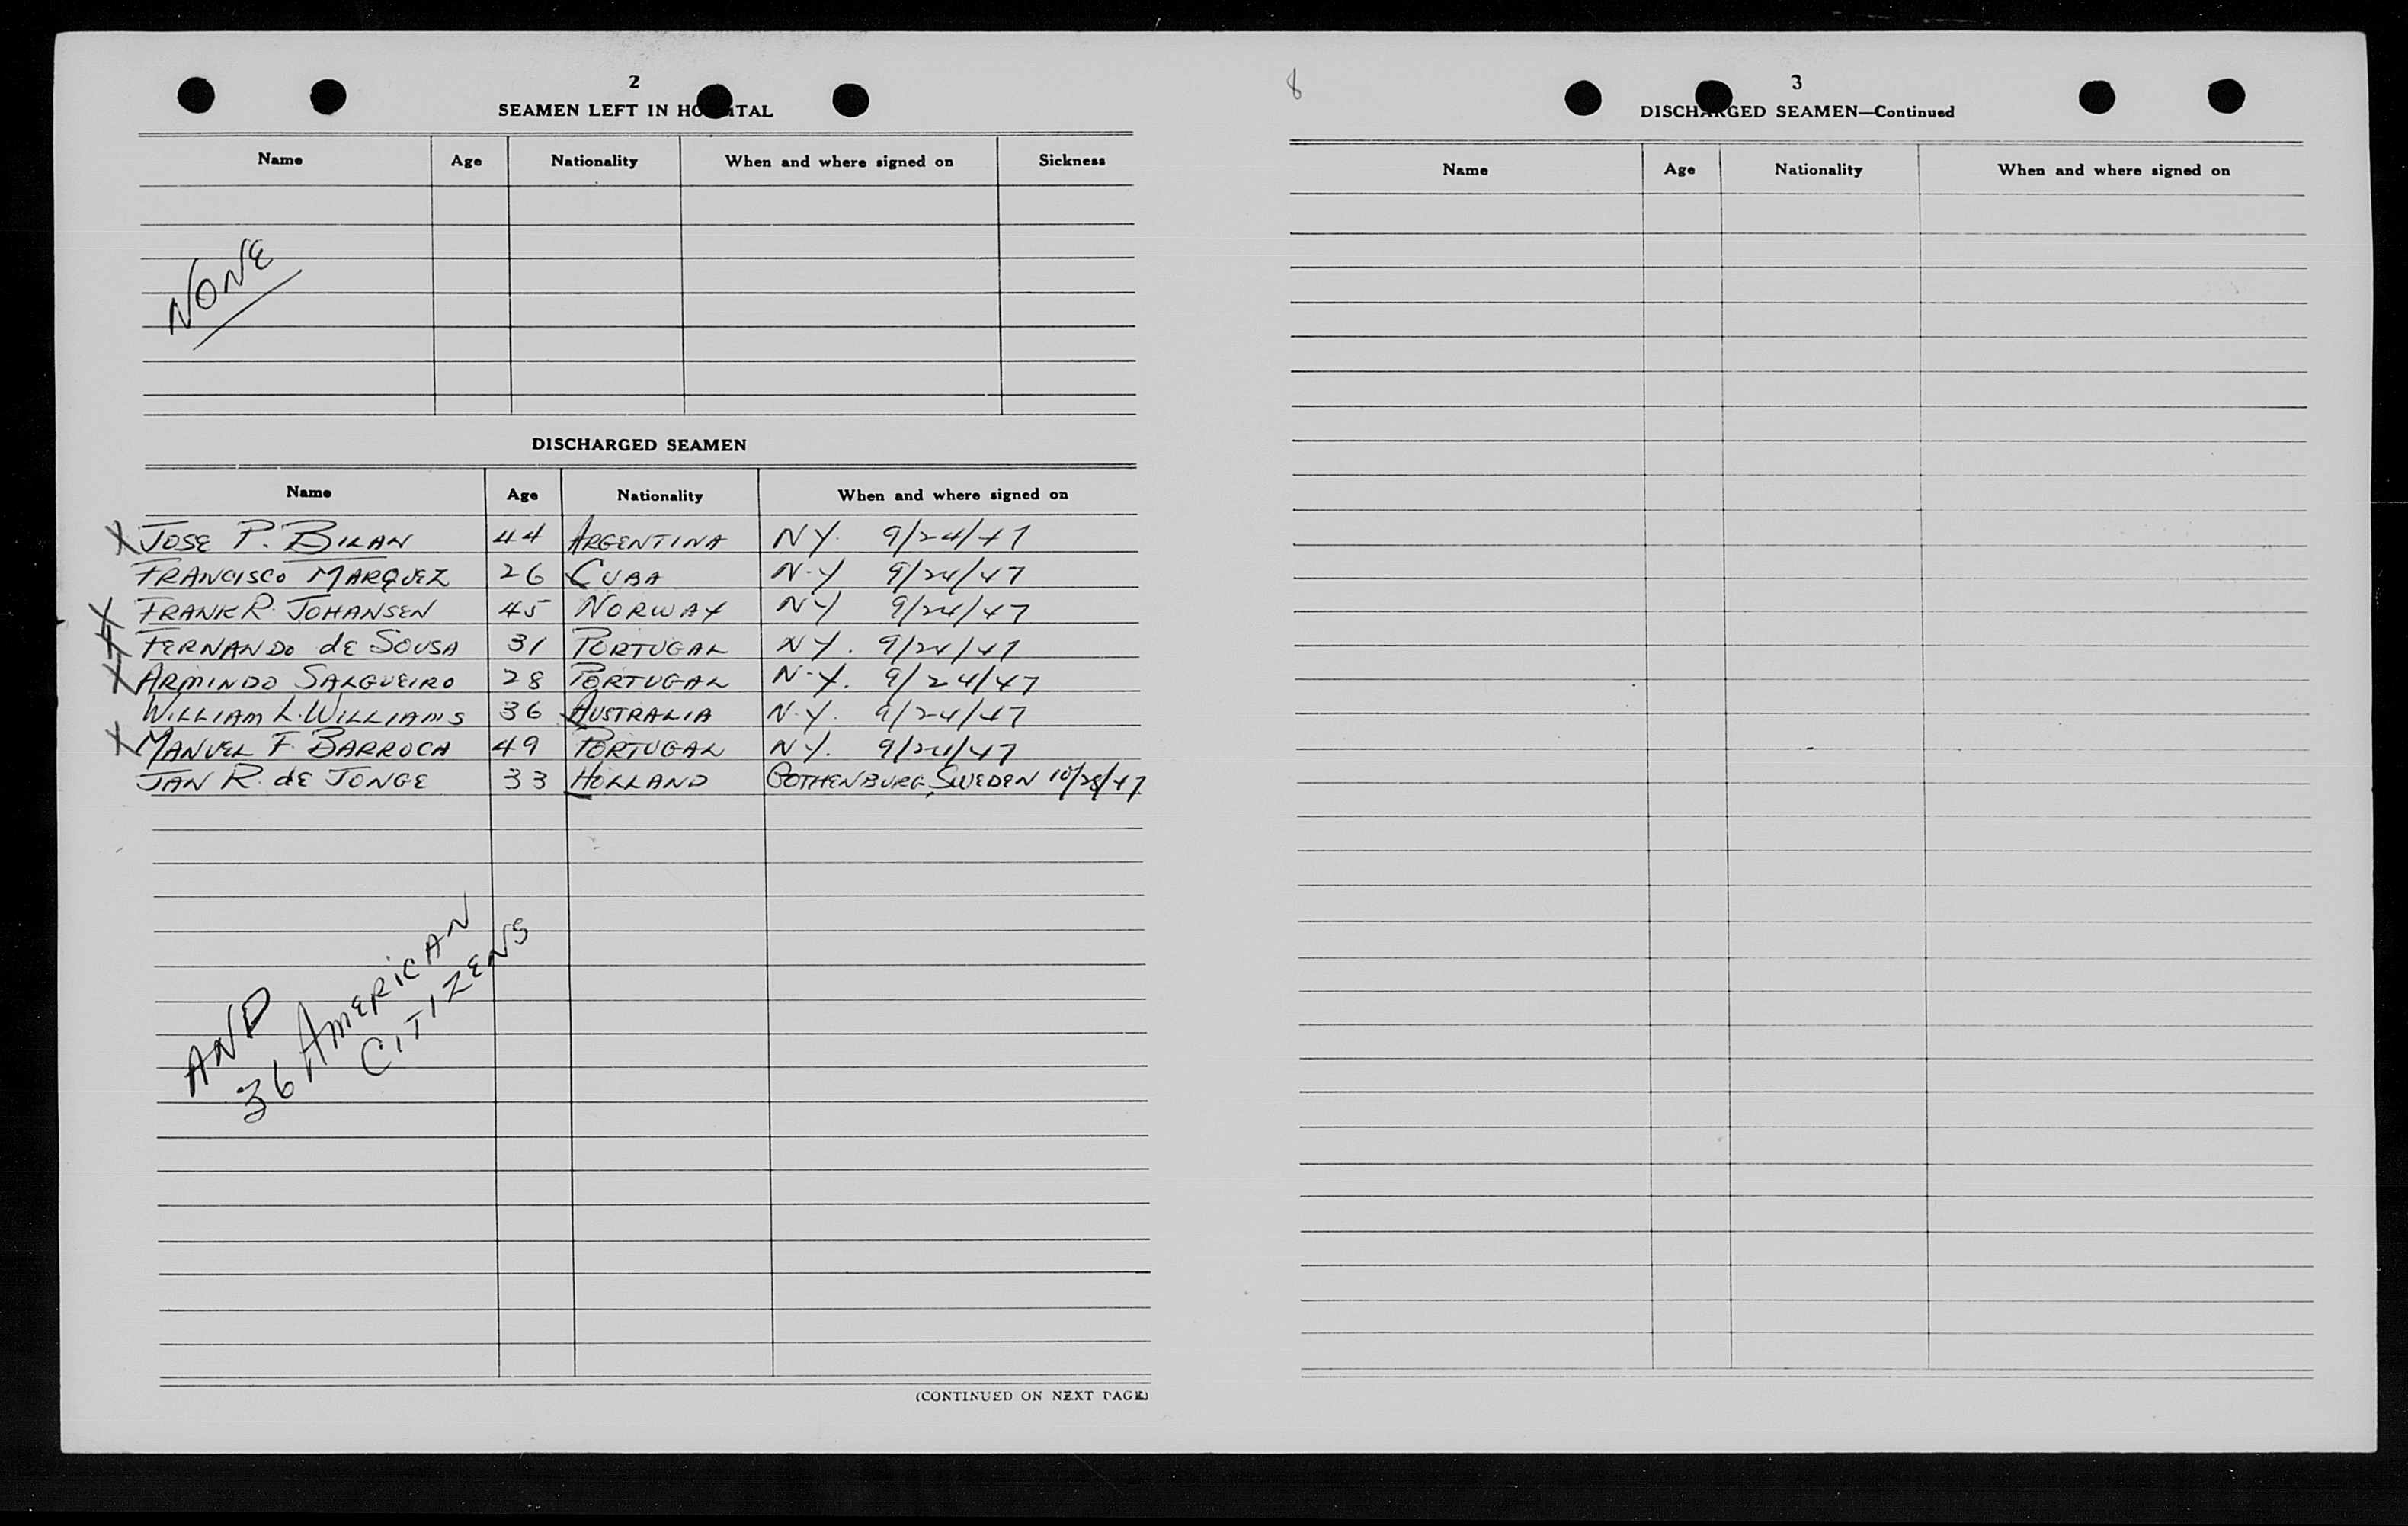 2
SEAMEN LEFT IN HOSPITAL
Name Age Nationality When and where signed on Sickness
NONE
DISCHARGED SEAMEN
Name Age Nationality When and where signed on
X JOSE P. BILAN 44 ARGENTINA NY. 9/24/47
FRANCISCO MARQUEZ 26 CUBA N.Y 9/24/47
X FRANK R. JOHANSEN 45 NORWAY NY 9/24/47
X FERNANDO dE SOUSA 31 PORTUGAL NY. 9/24/47
X ARMINDO SALGUEIRO 28 PORTUGAL N.Y. 9/24/47
WILLIAM L. WILLIAMS 36 AUSTRALIA N.Y. 9/24/47
X MANUEL F. BARROCA 49 PORTUGAL NY. 9/24/47
JAN R. dE JONGE 33 HOLLAND GOTHENBURG, SWEDEN 10/28/47
AND
36 AMERICAN
CITIZENS
(CONTINUED ON NEXT PAGE)
8
3
DISCHARGED SEAMEN—Continued
Name Age Nationality When and where signed on